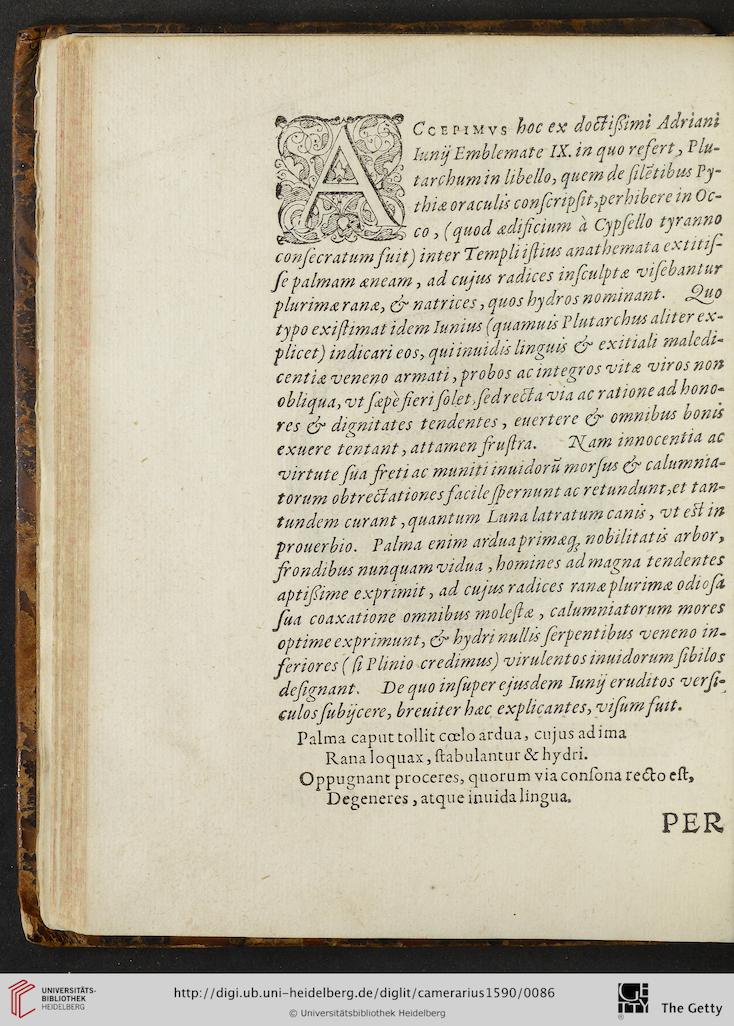 ACCEPIMVS hoc ex doctißimi Adriani
Iunij Emblemate IX. in quo refert, Plu-
tarchum in libello, quem de silētibus Py-
thiæ oraculis conscripsit, perhibere in Oc-
co, (quod ædificium à Cypsello tyranno
consecratum fuit) inter Templi istius anathemata extitis-
se palmam æneam, ad cujus radices insculptæ visebantur
plurimæ ranæ, & natrices, quos hydros nominant. Quo
typo existimat idem Iunius (quamuis Plutarchus aliter ex-
plicet) indicari eos, qui inuidis linguis & exitiali maledi-
centiæ veneno armati, probos ac integros vitæ viros non
obliqua, vt sæpè fieri solet, sed recta via ac ratione ad hono-
res & dignitates tendentes, euertere & omnibus bonis
exuere tentant, attamen frustra. Nam innocentia ac
virtute sua freti ac muniti inuidorū morsus & calumnia-
torum obtrectationes facile spernunt ac retundunt, et tan-
tundem curant, quantum Luna latratum canis, vt est in
prouerbio. Palma enim ardua primæq; nobilitatis arbor,
frondibus nunquam vidua, homines ad magna tendentes
aptißime exprimit, ad cujus radices ranæ plurimæ odiosa
sua coaxatione omnibus molestæ, calumniatorum mores
optime exprimunt, & hydri nullis serpentibus veneno in-
feriores (si Plinio credimus) virulentos inuidorum sibilos
designant. De quo insuper ejusdem Iunij eruditos versi-
culos subijcere, breuiter hæc explicantes, visum fuit.
Palma caput tollit cœlo ardua, cujus ad ima
Rana loquax, stabulantur & hydri.
Oppugnant proceres, quorum via consona recto est,
Degeneres, atque inuida lingua.
PER
UNIVERSITÄTS-
BIBLIOTHEK
HEIDELBERG
http://digi.ub.uni-heidelberg.de/diglit/camerarius1590/0086
© Universitätsbibliothek Heidelberg
The Getty